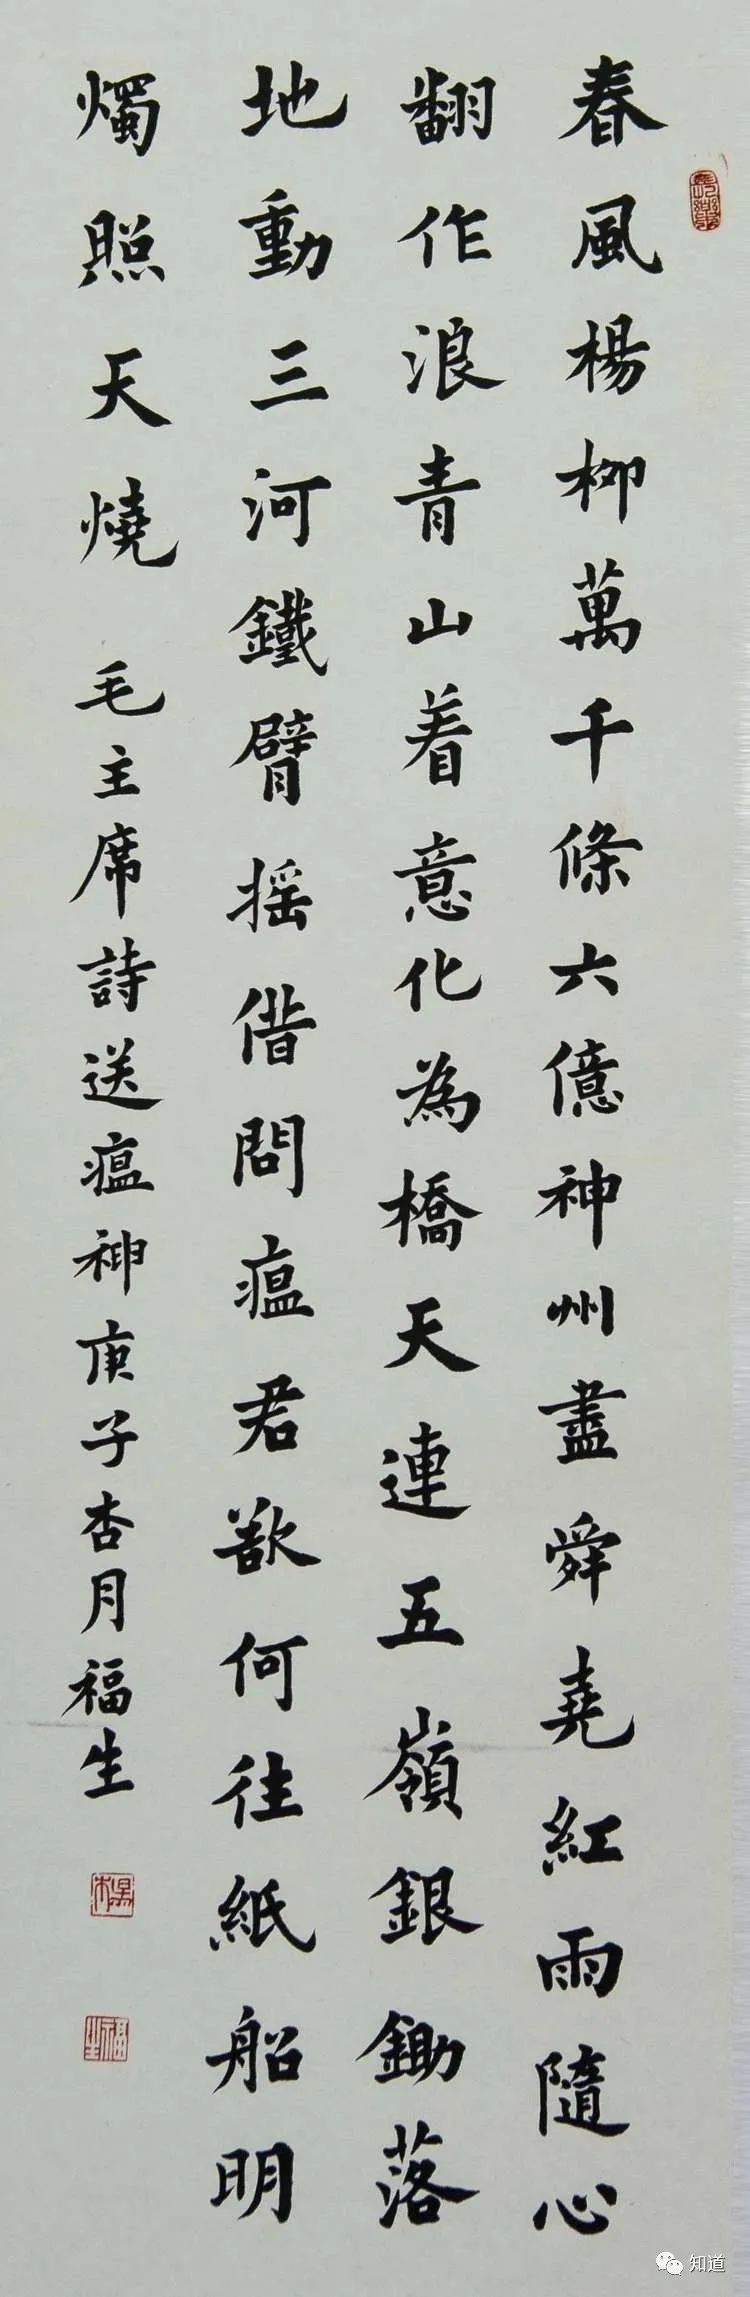 春風楊柳萬千條六億神州盡舜堯紅雨隨心
翻作浪青山着意化為橋天連五嶺銀鋤落
地動三河鐵臂摇借問瘟君欲何往紙船明
燭照天燒
毛主席詩送瘟神庚子杏月福生
福生
知道